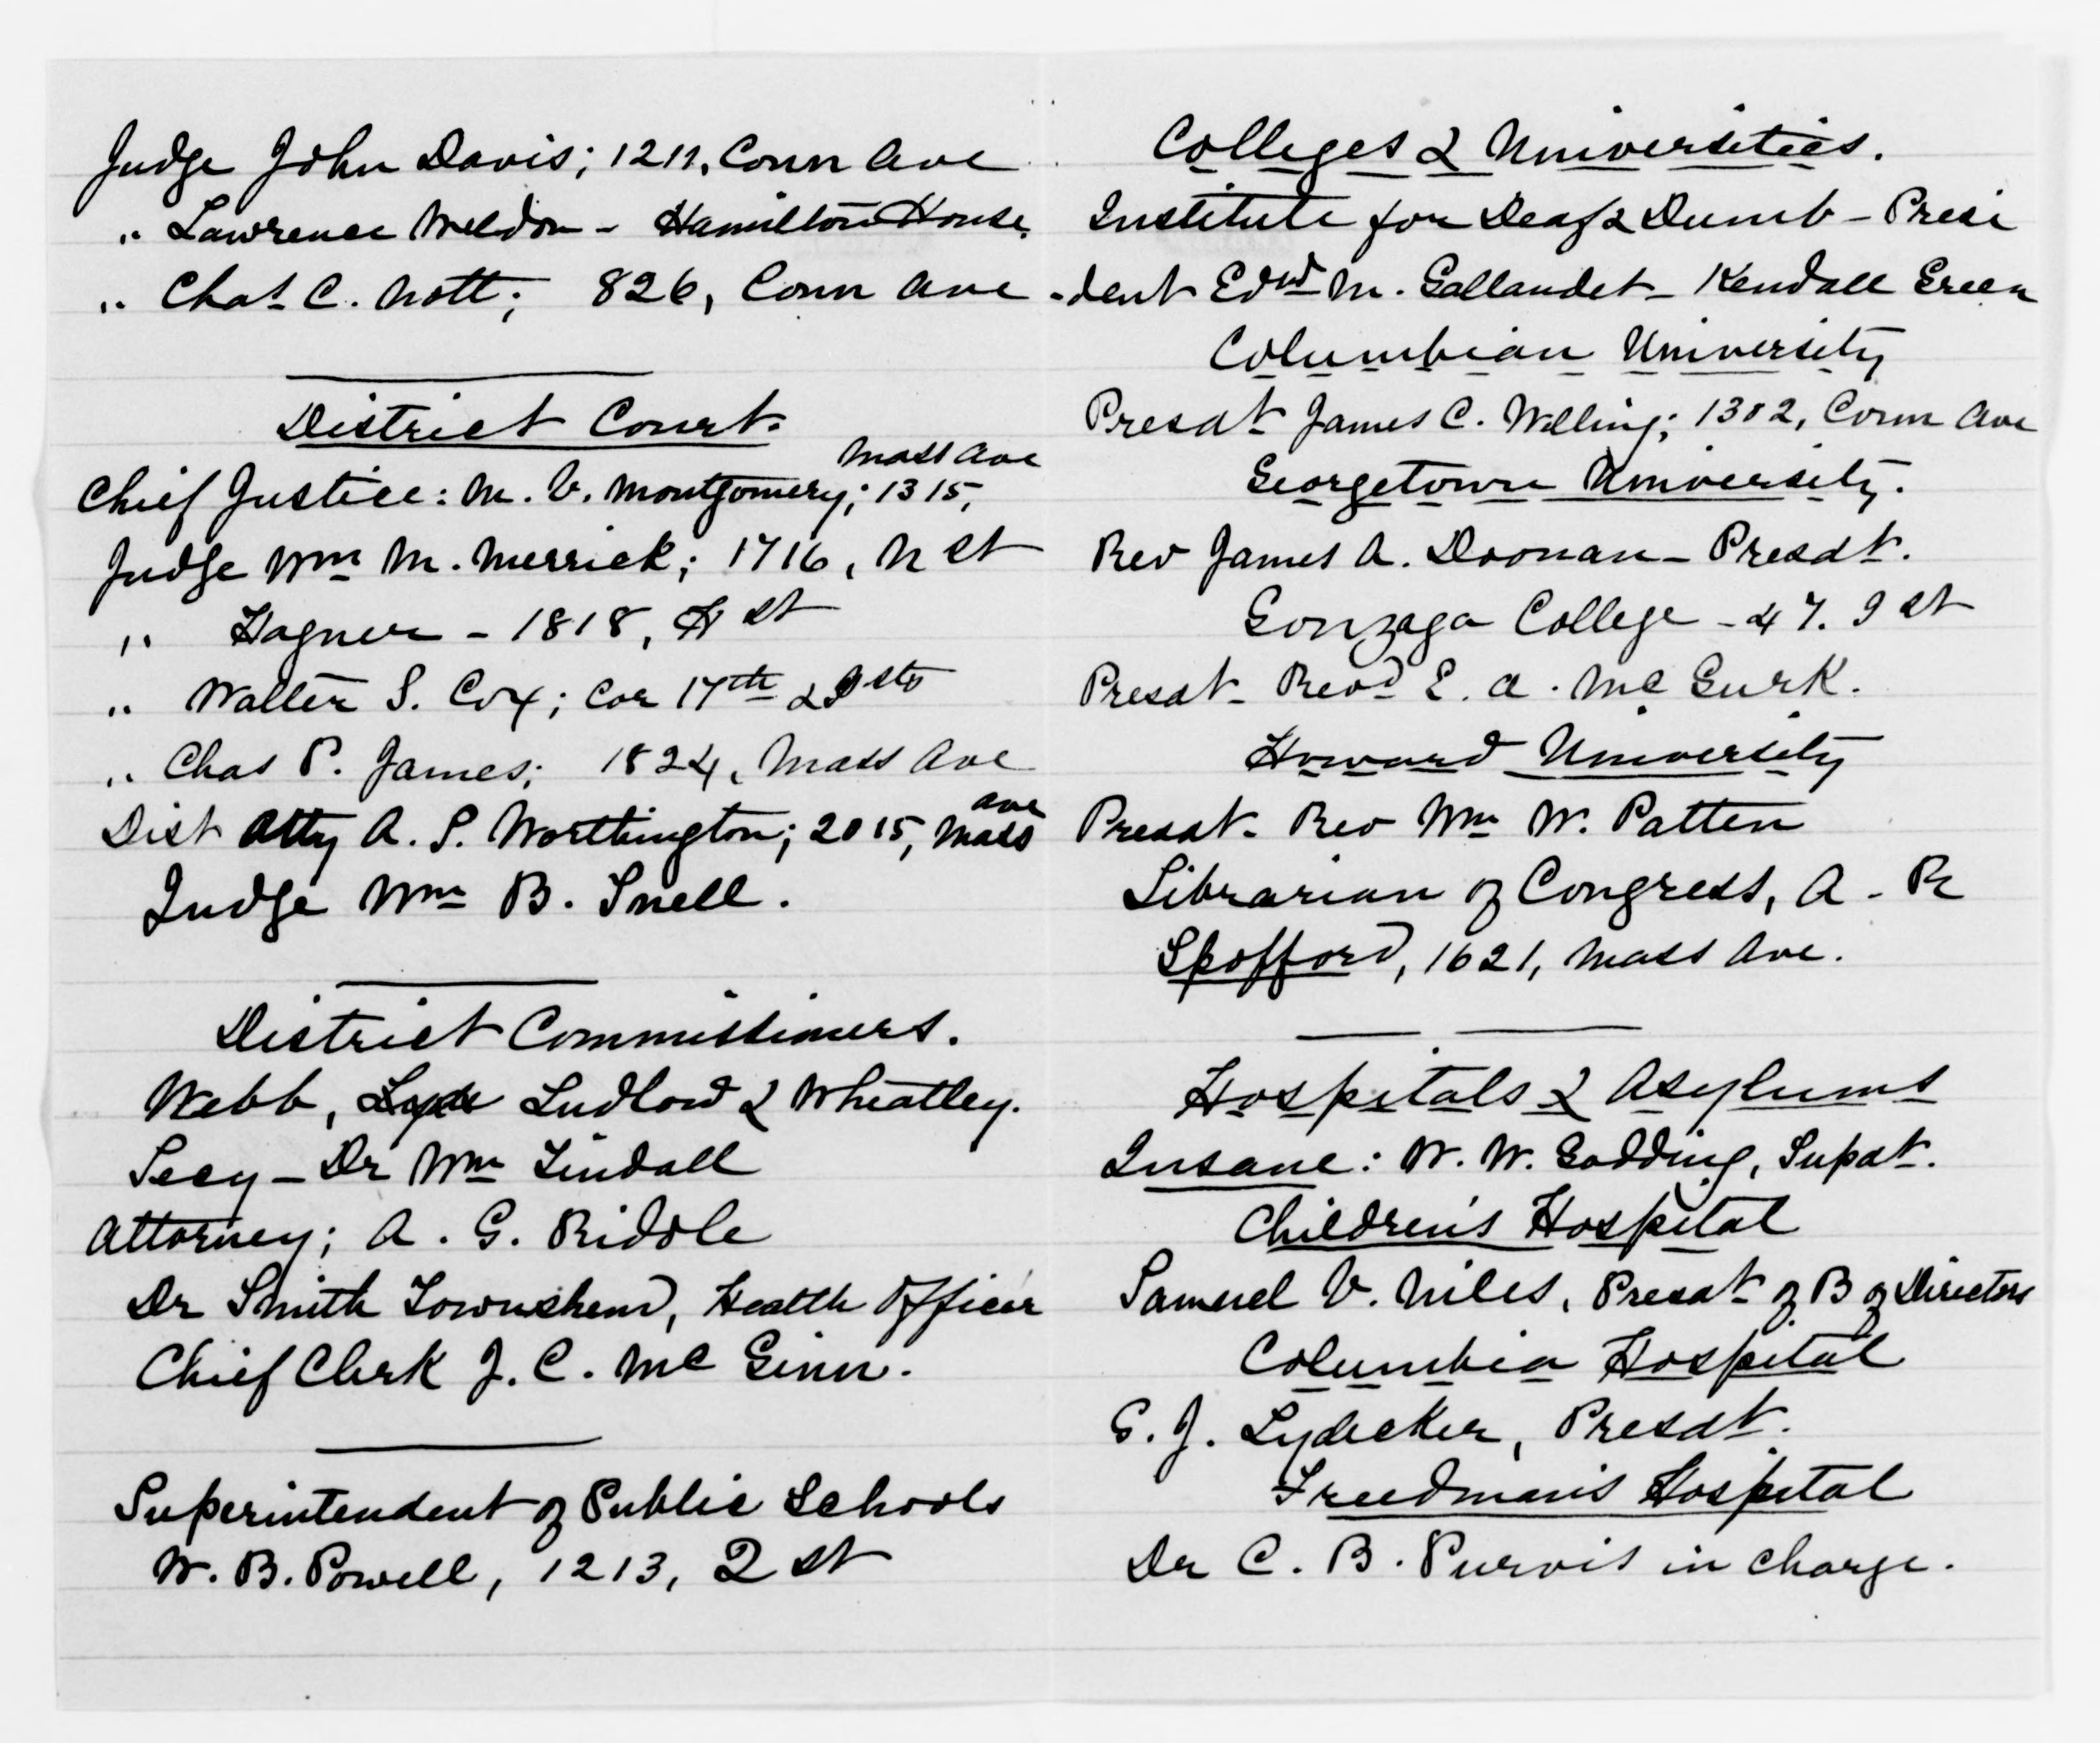 Judge John Davis; 1211, Conn Ave
" Lawrence Weldon - Hamilton House.
" Chas C. Nott; 826, Conn Ave
District Court.
Mass Ave
Chief Justice: M. V. Montgomery; 1315,
Judge Wm M. Merrick; 1716, N St
" Hagner - 1818, H St
" Walter S. Cox; Cor 17th & I Sts
" Chas P. James; 1824, Mass Ave
ave
Dist Atty A. S. Worthington; 2015, Mass
Judge Wm B. Snell.
District Commissioners.
Webb, Lyde Ludlow & Wheatley.
Secy - Dr Wm Tindall
Attorney; A. G. Riddle
Dr Smith Townshend, Health Officer
Chief Clerk J. C. McGinn.
Superintendent of Public Schools
W. B. Powell, 1213, Q St
Colleges & Universities.
Institute for Deaf & Dumb - Presi
-dent Edwd M. Gallaudet - Kendall Green
Columbian University
Presdt James C. Welling; 1302, Conn Ave
Georgetown University.
Rev James A. Doonan - Presdt.
Gonzaga College - 47. I St
Presdt - Revd E. A. McGurk.
Howard University
Presdt - Rev Wm W. Patten
Librarian of Congress, A - R
Spofford, 1621, Mass Ave.
Hospitals & Asylums
Insane: W. W. Godding, Supdt.
Children's Hospital
Samuel V. Niles, Presdt of B of Directors
Columbia Hospital
G. J. Lydecker, Presdt.
Freedman's Hospital
Dr C. B. Purvis in charge.